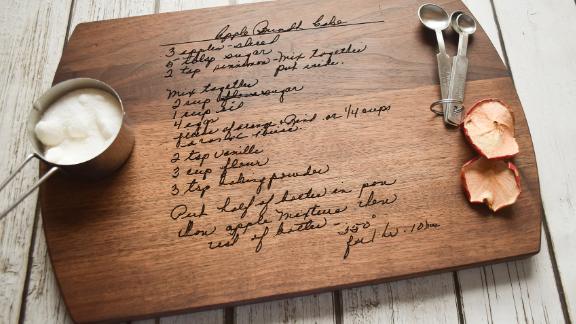 Apple Cake
3 apples - sliced
5 tblsp sugar
2 tsp cinnamon - Mix together
put aside.
Mix together
2 cup sugar
1 cup oil
4 eggs
of orange + Rind or 1/4 cups
juice.
2 tsp vanilla
3 cup flour
3 tsp baking powder
Put half of batter in pan
then apple mixture then
rest of batter
350°
for 1 hr. 10